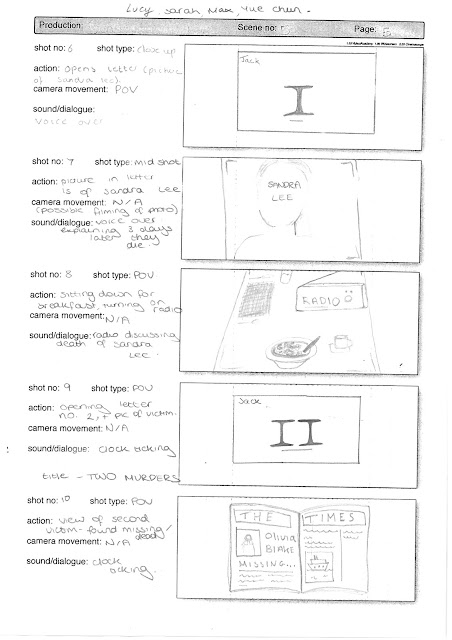 Lucy, Sarah, Max, Yue Chun.
Production:
Scene no:
Page: 5
shot no: 6 shot type: close up
action: Opens letter (picture
of sandra lee).
camera movement: POV
sound/dialogue:
voice over
Jack
I
shot no: 7 shot type: mid shot
action: picture in letter
is of sandra LEE
camera movement: N/A
(possible filming of photo)
sound/dialogue: voice over
explaining 3 days
later they
die.
SANDRA
LEE
shot no: 8 shot type: POV
action: sitting down for
breakfast, turning on
radio
camera movement: N/A
sound/dialogue: radio discussing
death of sandra
Lee.
RADIO
shot no: 9 shot type: POV
action: opening letter
no. 2, + pic of victim.
camera movement: N/A
sound/dialogue: clock ticking
title - TWO MURDERS
Jack
II
shot no: 10 shot type: POV
action: view of second
victim- found missing/
dead
camera movement: N/A
sound/dialogue: clock
ticking.
THE TIMES
Olivia
BLAKE
MISSING...